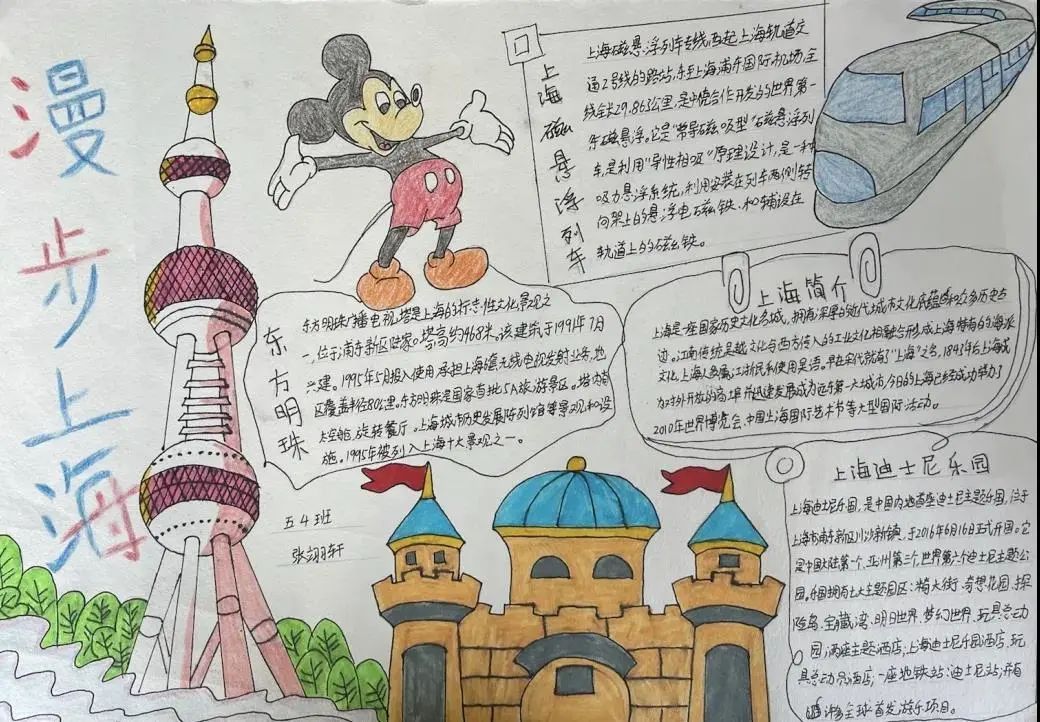 漫步上海
上海磁悬浮列车
上海磁悬浮列车专线西起上海轨道交
通2号线的路站,东至上海浦东国际机场,全
线全长29.863公里,是中德合作开发的世界第一
条磁悬浮。它是"常导磁吸型"磁悬浮列
车,是利用"异性相吸"原理设计,是一种
吸力悬浮系统,利用安装在列车两侧转
向架上的悬浮电磁铁,和铺设在
轨道上的磁铁。
东方明珠
东方明珠广播电视塔是上海的标志性文化景观之
一,位于浦东新区陆家。塔高约468米。该建筑于1991年7月
兴建。1995年5月投入使用承担上海无线电视发射业务,地
区覆盖半径80公里。东方明珠是国家首批5A旅游景区。塔内有
太空舱,旋转餐厅,上海城市历史发展陈列馆等景观和设
施。1995年被列入上海十大景观之一。
上海简介
上海是一座国家历史文化名城,拥有深厚的近代城市文化底蕴和众多历史古
迹。江南传统吴越文化与西方传入的工业文化相融合形成上海特有的海派
文化,上海人多属江浙民系使用吴语。早在宋代就有"上海"之名,1843年后上海成
为对外开放的商埠并迅速发展成为远东第一大城市,今日的上海已经成功举办了
2010年世界博览会、中国上海国际艺术节等大型国际活动。
上海迪士尼乐园
上海迪尼乐园,是中国内地首座迪士尼主题乐园,位于
上海市浦东新区川沙新镇,于2016年6月16日正式开园。它
是中国大陆第一个、亚洲第三个,世界第六个迪士尼主题公
园。乐园拥有七大主题园区:米奇大街、奇想花园、探
险岛、宝藏湾、明日世界、梦幻世界、玩具总动
园;两座主题酒店:上海迪士尼乐园酒店、玩
具总动员酒店;一座地铁站:迪士尼站;并有
全球首发游乐项目。
五4班
张翊轩